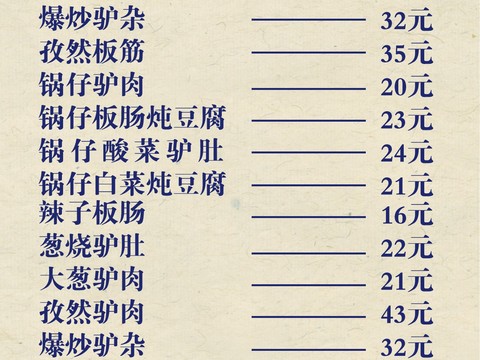 爆炒驴杂 32元
孜然板筋 35元
锅仔驴肉 20元
锅仔板肠炖豆腐 23元
锅仔酸菜驴肚 24元
锅仔白菜炖豆腐 21元
辣子板肠 16元
葱烧驴肚 22元
大葱驴肉 21元
孜然驴肉 43元
爆炒驴杂 32元